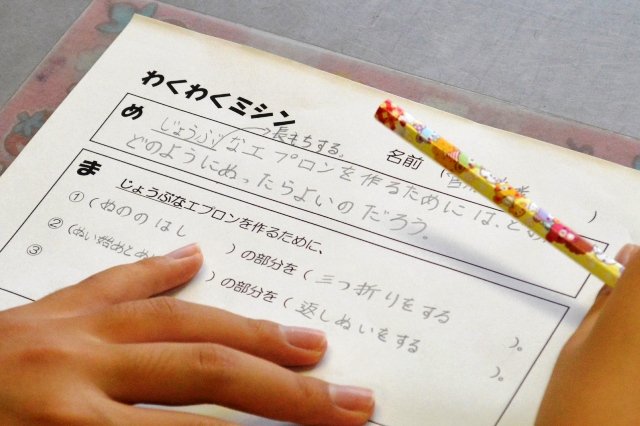 わくわくミシン
名前(
→長もちする。
め じょうぶなエプロンを作るためには、
どのようにぬったらよいのだろう。
ま じょうぶなエプロンを作るために、
①(ぬののはし )の部分を(三つ折りをする )。
②(ぬい始めとぬい )の部分を(返しぬいをする )。
③